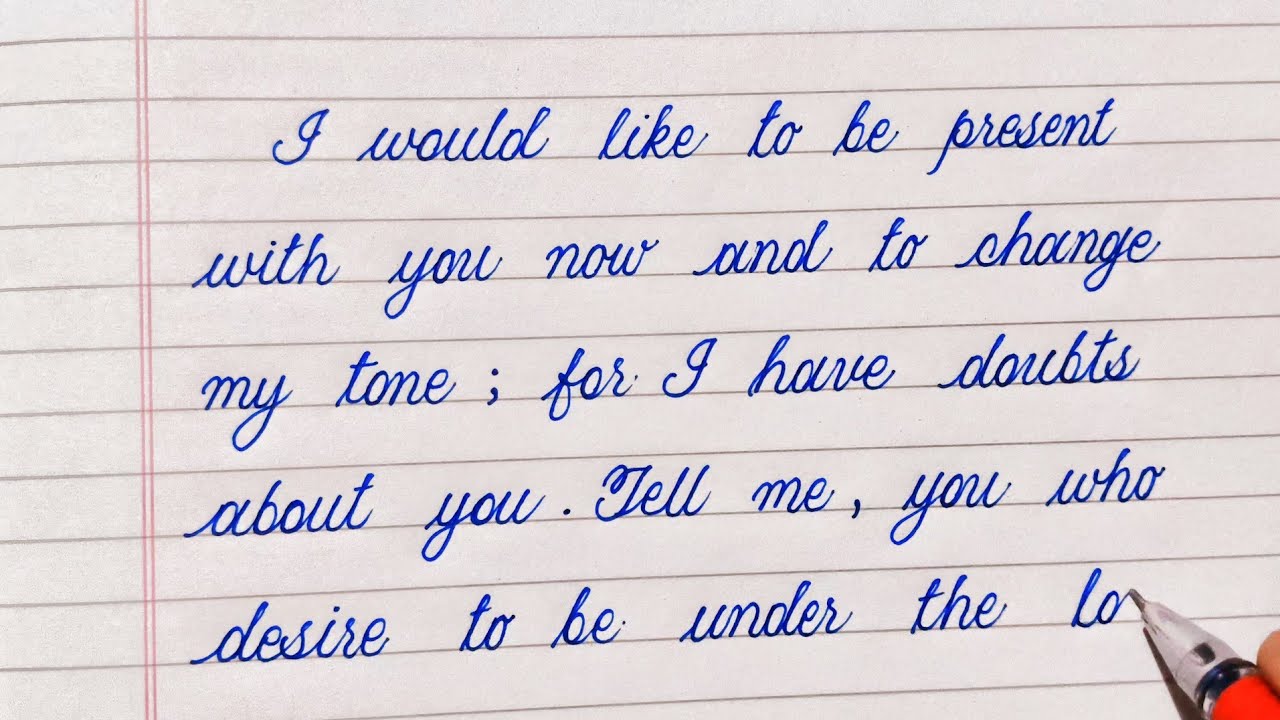 I would like to be present
with you now and to change
my tone ; for I have doubts
about you . Tell me , you who
desire to be under the lo